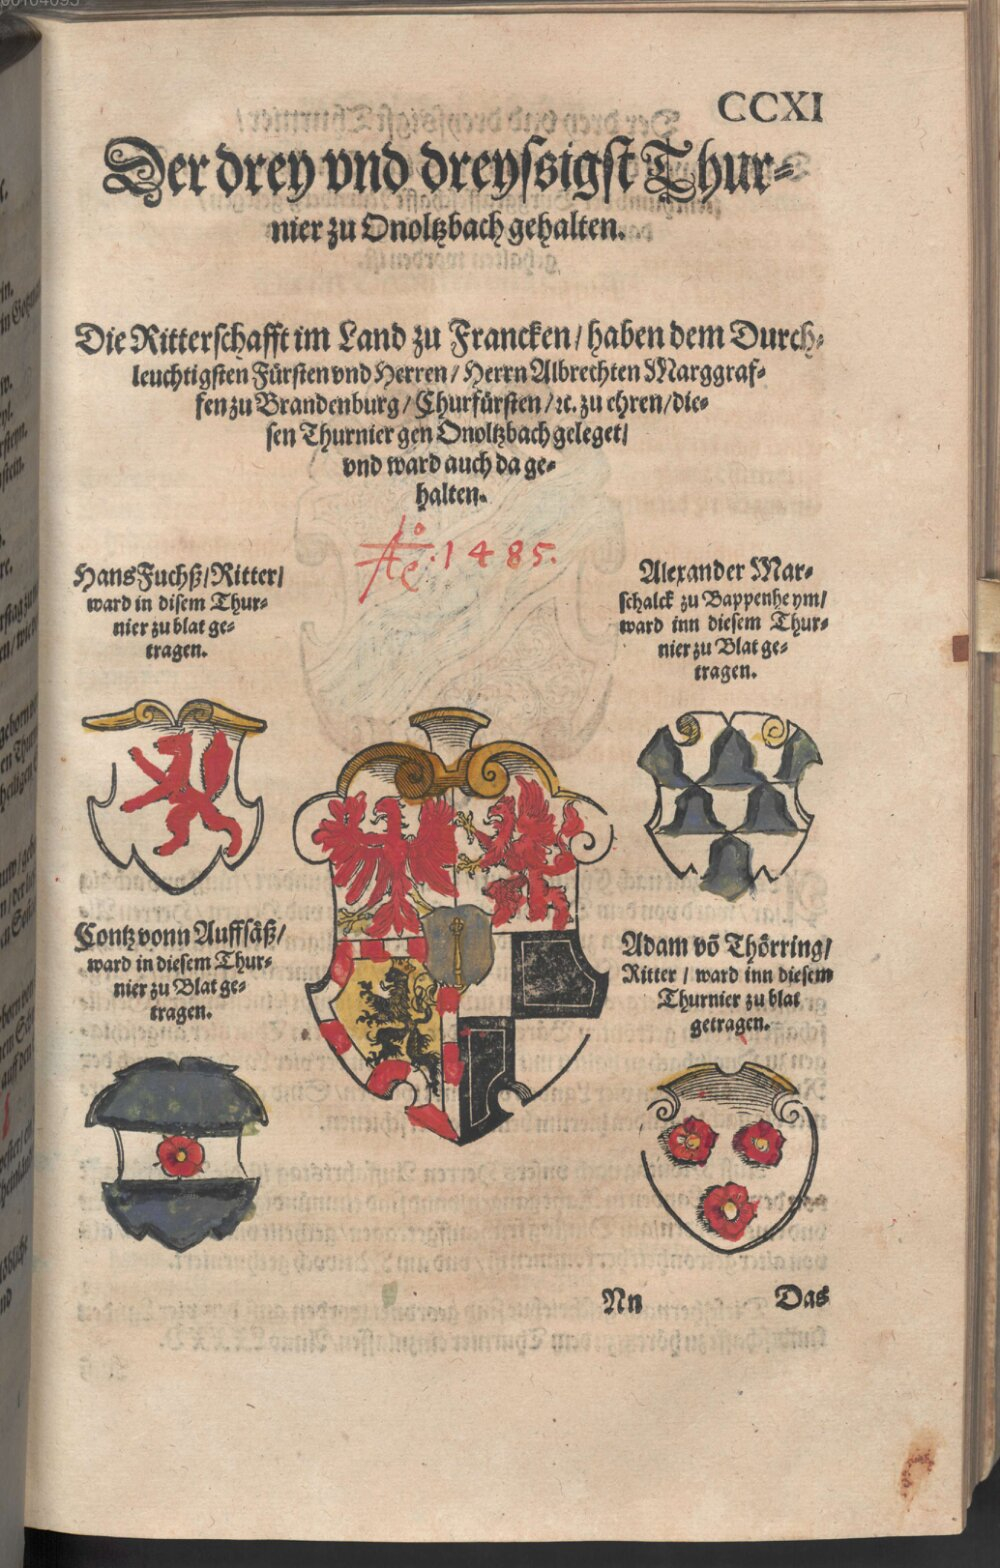 CCXI
Der drey vnd dreyſsigſt Thur⸗
nier zu Onoltzbach gehalten.
Die Ritterſchafft im Land zu Francken / haben dem Durch⸗
leuchtigſten Fürſten vnd Herren / Herrn Albrechten Marggraf⸗
fen zu Brandenburg / Churfürſten / ꝛc. zu ehren / die⸗
ſen Thurnier gen Onoltzbach geleget /
vnd ward auch da ge⸗
halten.
Ao. 1485.
Hans Fuchß / Ritter /
ward in diſem Thur⸗
nier zu blat ge⸗
tragen.
Alexander Mar⸗
ſchalck zu Bappenheym /
ward inn dieſem Thur⸗
nier zu Blat ge⸗
tragen.
Contz vonn Auffſäß /
ward in dieſem Thur⸗
nier zu Blat ge⸗
tragen.
Adam võ Thörring /
Ritter / ward inn dieſem
Thurnier zu blat
getragen.
Nn
Das